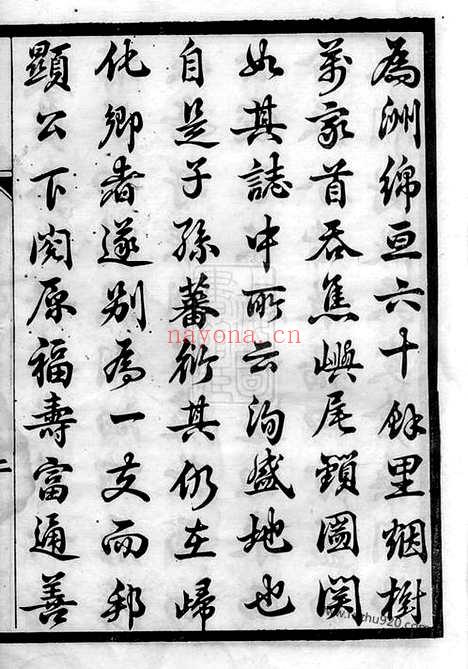 為洲綿亘六十餘里烟樹
萬家首吞焦嶼尾鎖圖関
如其誌中所云洵盛地也
自是子孫蕃衍其仍在歸
化鄉者遂别為一支而邦
顯公下閎原福壽富通善
nayona.cn